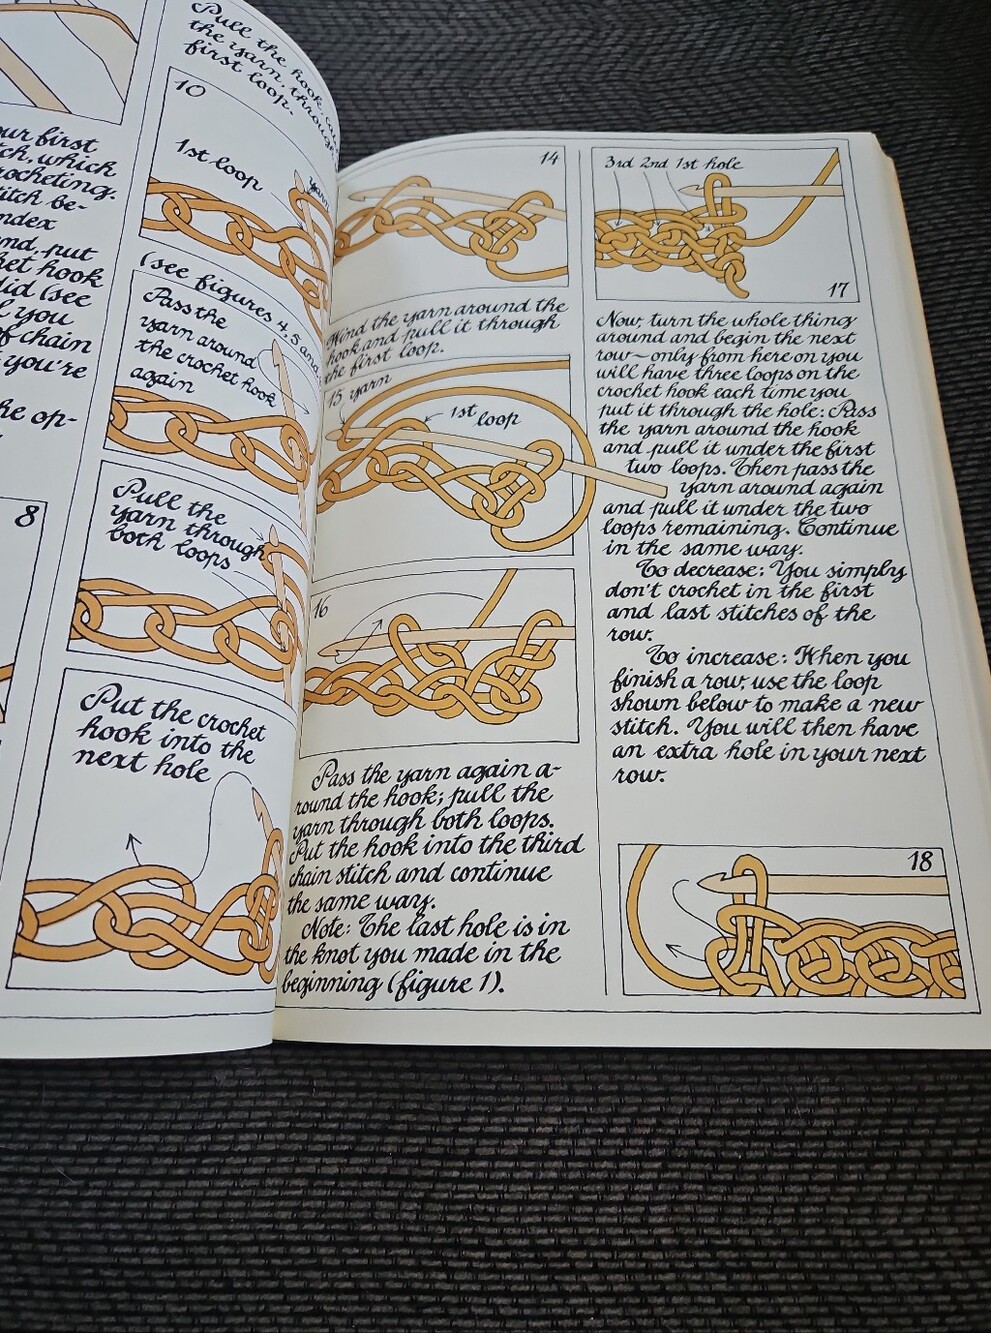 our first
which
rocheting.
be-
index
put
hook
did (see
you
of chain
you're
op-
8
Pull the hook,
the yarn, through
first loop.
10
1st loop
yarn
(see figures 4, 5 and
Pass the
yarn around
the crochet hook
again
Pull the
yarn through
both loops
Put the crochet
hook into the
next hole
14
Wind the yarn around the
hook and pull it through
the first loop.
15 yarn
1st
loop
16
Pass the yarn again a-
round the hook; pull the
yarn through both loops.
Put the hook into the third
chain stitch and continue
the same way.
Note: The last hole is in
the knot you made in the
beginning (figure 1).
3rd 2nd 1st hole
17
Now, turn the whole thing
around and begin the next
row—only from here on you
will have three loops on the
crochet hook each time you
put it through the hole: Pass
the yarn around the hook
and pull it under the first
two loops. Then pass the
yarn around again
and pull it under the two
loops remaining. Continue
in the same way.
To decrease: You simply
don't crochet in the first
and last stitches of the
row.
To increase: When you
finish a row, use the loop
shown below to make a new
stitch. You will then have
an extra hole in your next
row.
18